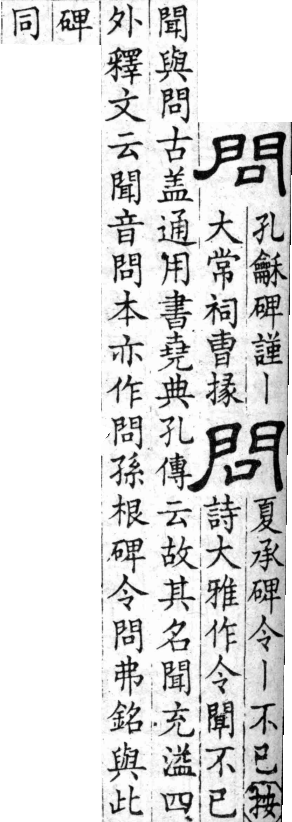 問
孔龢碑謹丨
大常祠曹掾
問
夏承碑令丨不已按
詩大雅作令聞不已
聞與問古盖通用書堯典孔傳云故其名聞充溢四
外釋文云聞音問本亦作問孫根碑令問弗銘與此
碑
同